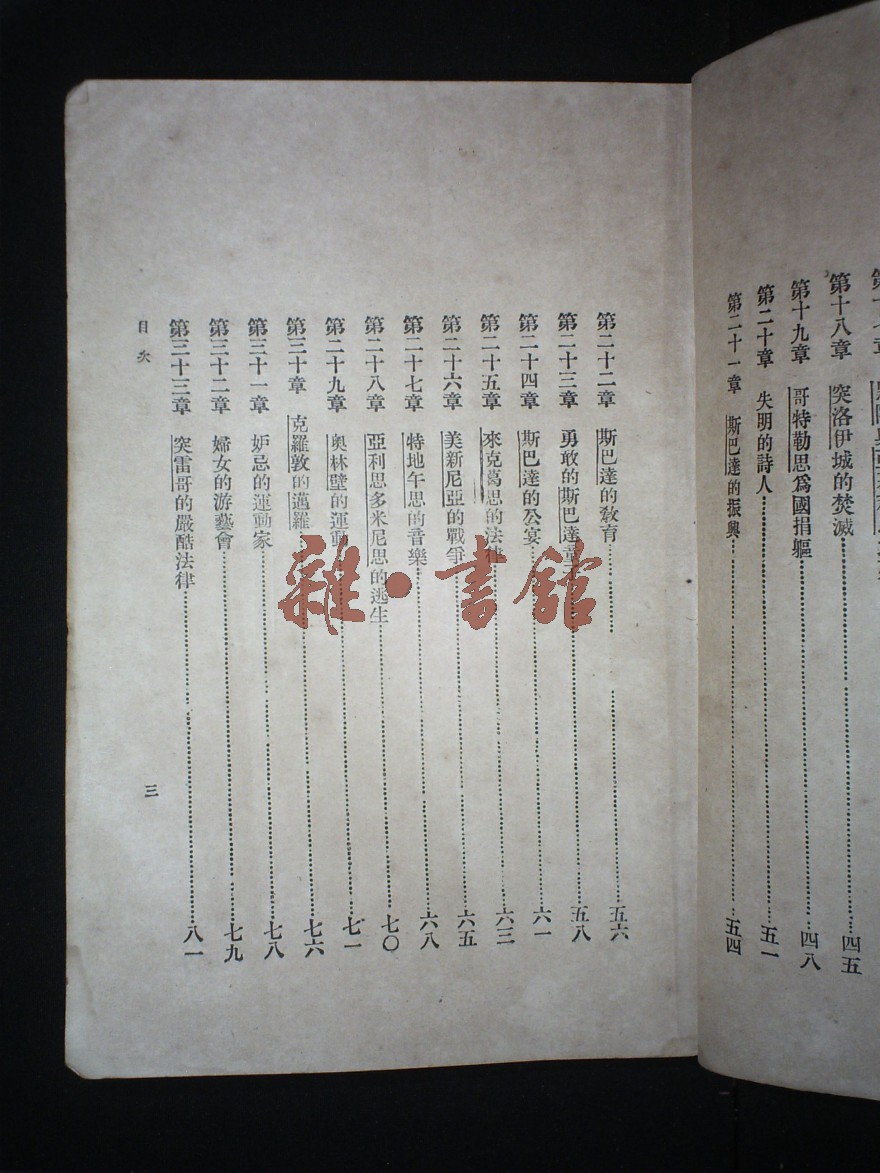 第十八章　突洛伊城的焚滅……四五
第十九章　哥特勒思爲國捐軀……四八
第二十章　失明的詩人……五一
第二十一章　斯巴達的振興……五四
第二十二章　斯巴達的敎育……五六
第二十三章　勇敢的斯巴達童子……五八
第二十四章　斯巴達的公宴……六一
第二十五章　來克葛思的法律……六三
第二十六章　美新尼亞的戰爭……六五
第二十七章　特地午思的音樂……六八
第二十八章　亞利思多米尼思的逃生……七〇
第二十九章　奧林壁的運動……七一
第三十章　克羅敦的邁羅……七六
第三十一章　妒忌的運動家……七八
第三十二章　婦女的游藝會……七九
第三十三章　突雷哥的嚴酷法律……八一
目次
三
雜·書館